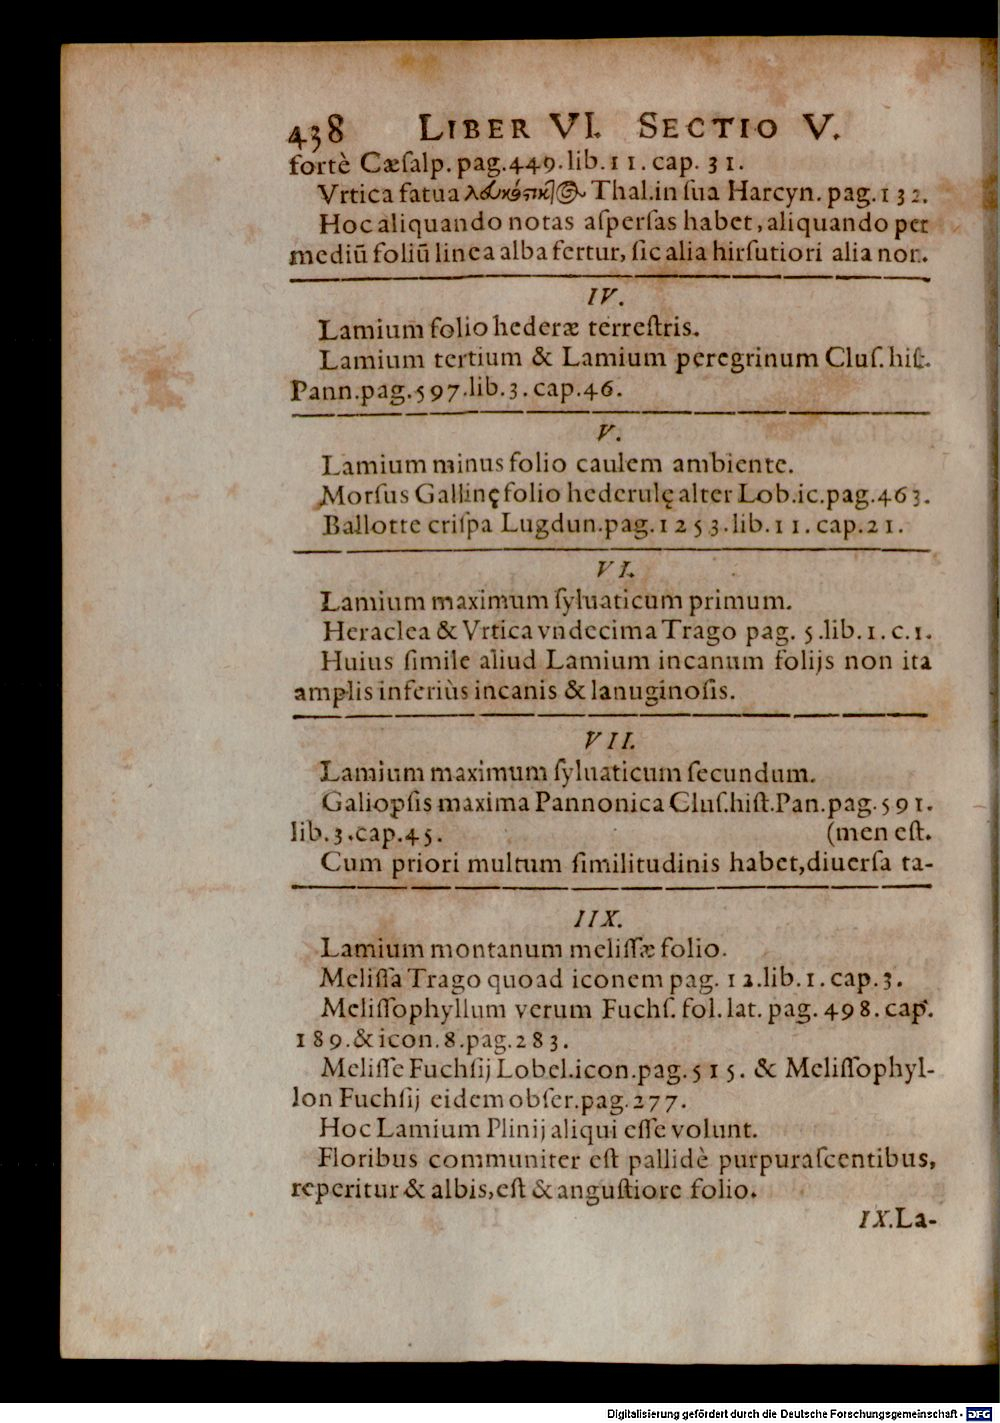 438 LIBER VI. SECTIO V.
fortè Cæſalp. pag. 449. lib. 11. cap. 31.
Vrtica fatua Thal. in ſua Harcyn. pag. 132.
Hoc aliquando notas aſperſas habet, aliquando per
mediū foliū linea alba fertur, ſic alia hirſutiori alia non.
IV.
Lamium folio hederæ terreſtris.
Lamium tertium & Lamium peregrinum Cluſ. hiſt.
Pann. pag. 597. lib. 3. cap. 46.
V.
Lamium minus folio caulem ambiente.
Morſus Gallinę folio hederulę alter Lob. ic. pag. 463.
Ballotte criſpa Lugdun. pag. 1253. lib. 11. cap. 21.
VI.
Lamium maximum ſyluaticum primum.
Heraclea & Vrtica vndecima Trago pag. 5. lib. 1. c. 1.
Huius ſimile aliud Lamium incanum folijs non ita
amplis inferiùs incanis & lanuginoſis.
VII.
Lamium maximum ſyluaticum ſecundum.
Galiopſis maxima Pannonica Cluſ. hiſt. Pan. pag. 591.
lib. 3. cap. 45. (men eſt.
Cum priori multum ſimilitudinis habet, diuerſa ta-
IIX.
Lamium montanum meliſſæ folio.
Meliſſa Trago quoad iconem pag. 12. lib. 1. cap. 3.
Meliſſophyllum verum Fuchſ. fol. lat. pag. 498. cap.
189. & icon. 8. pag. 283.
Meliſſe Fuchſij Lobel. icon. pag. 515. & Meliſſophyl-
lon Fuchſij eidem obſer. pag. 277.
Hoc Lamium Plinij aliqui eſſe volunt.
Floribus communiter eſt pallidè purpuraſcentibus,
reperitur & albis, eſt & anguſtiore folio.
IX. La-
Digitalisierung gefördert durch die Deutsche Forschungsgemeinschaft - DFG